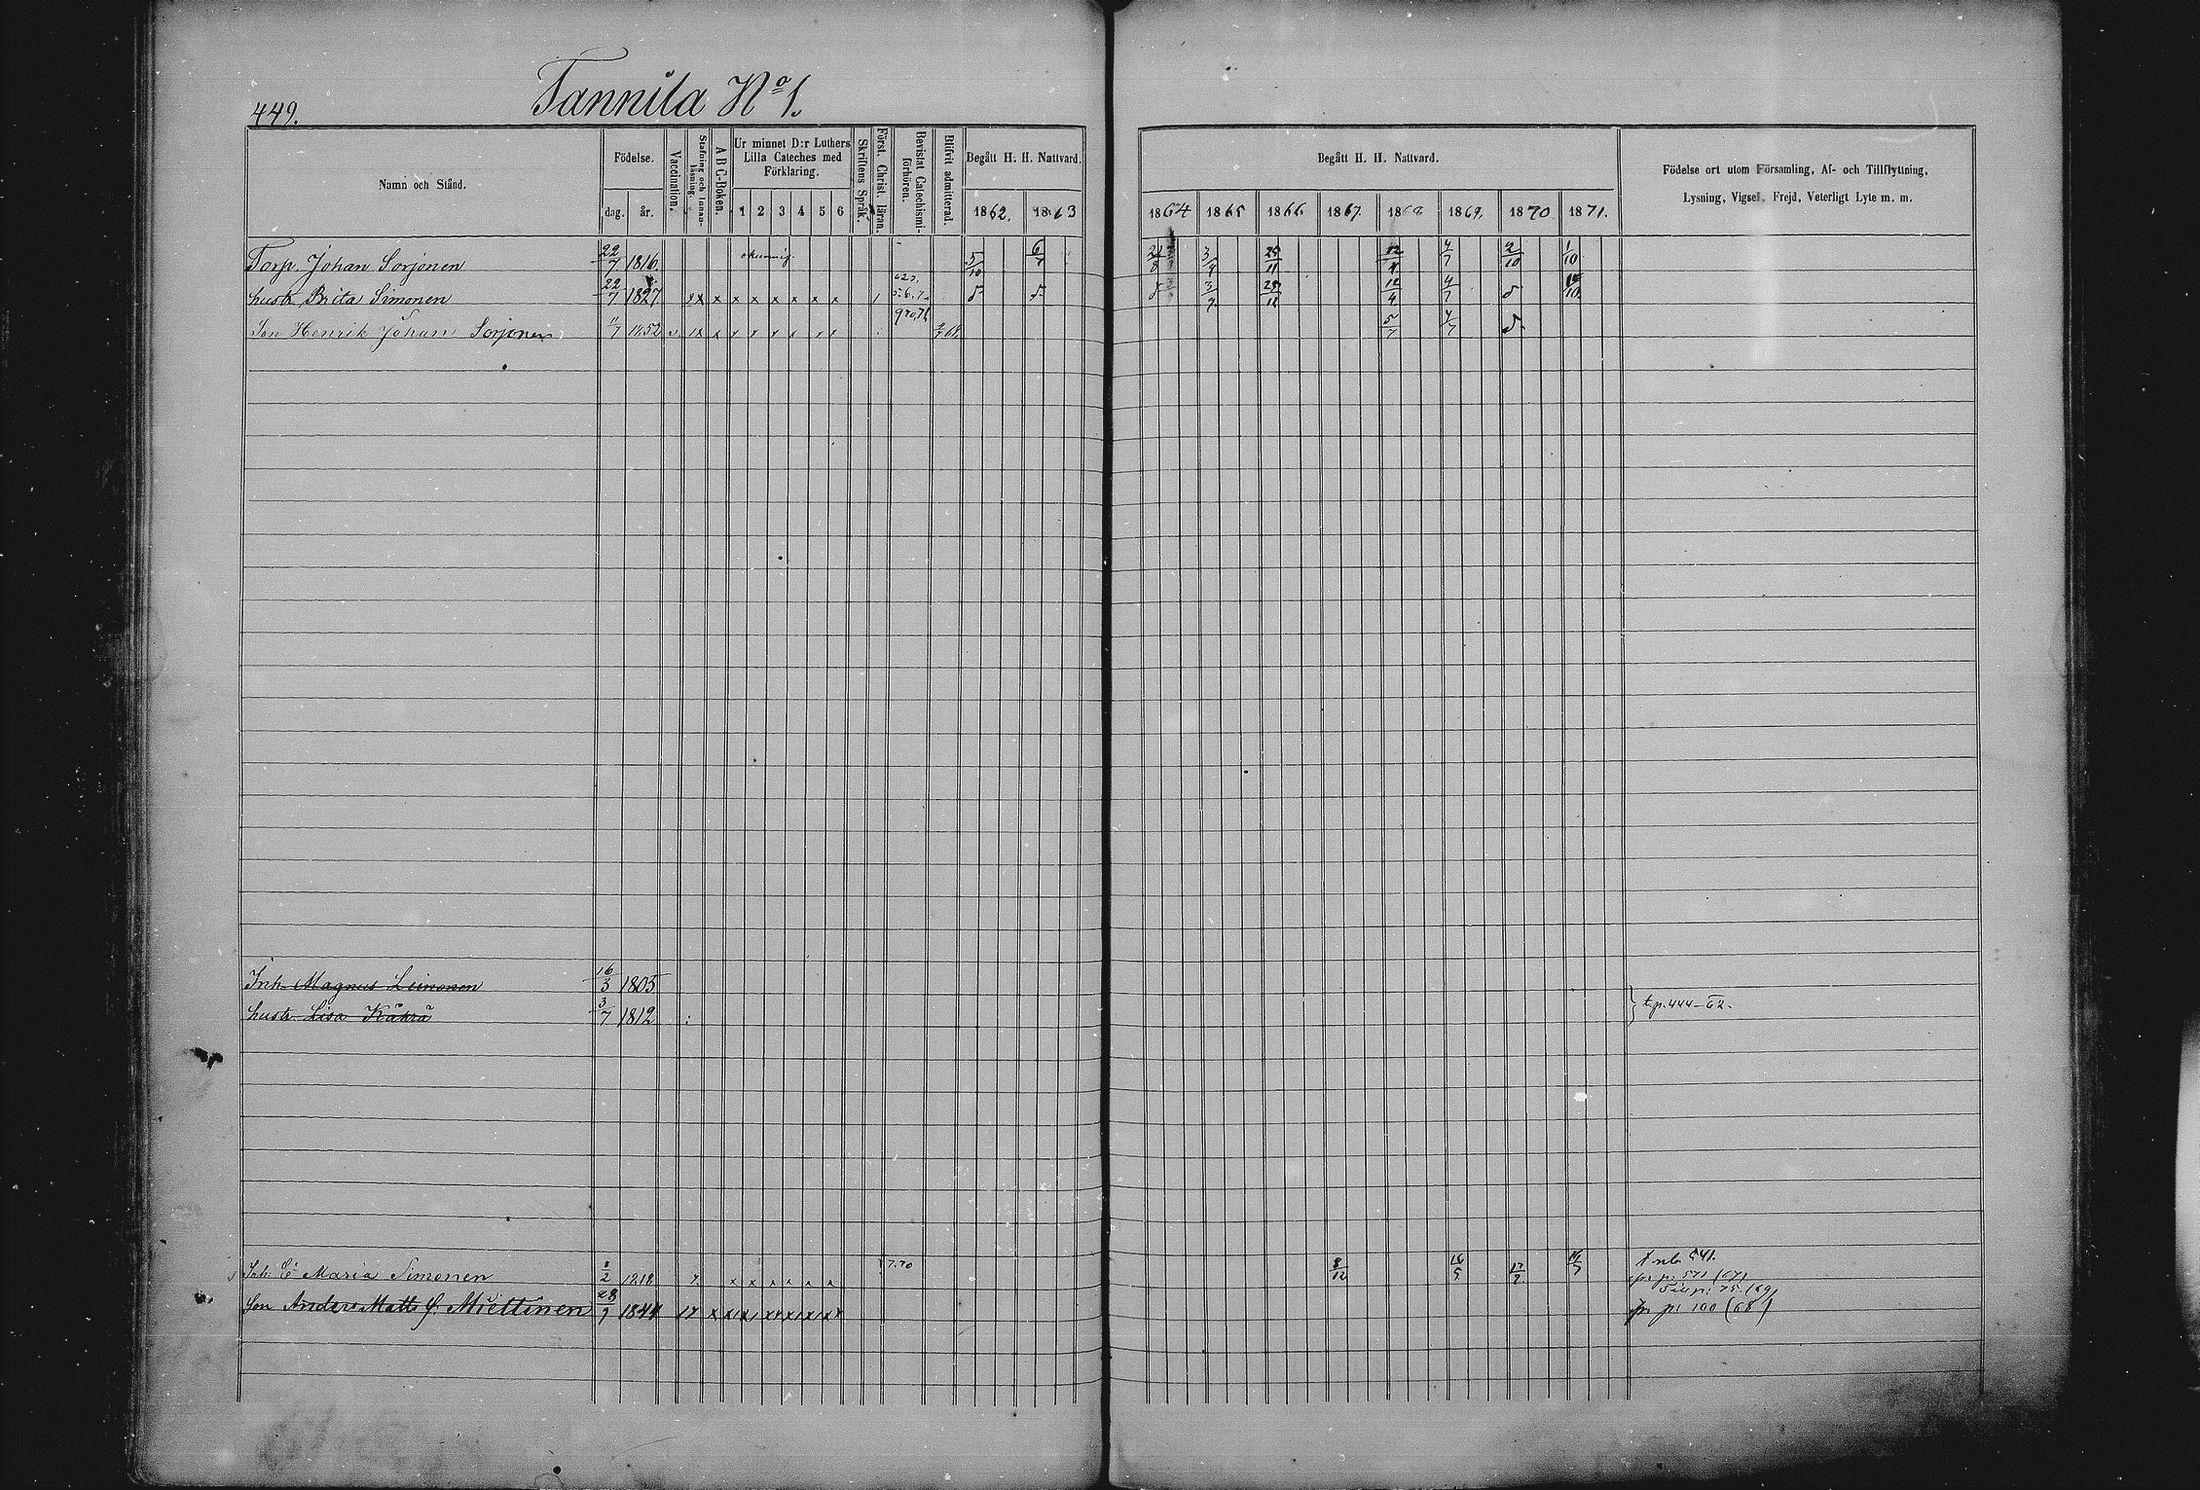 449.
Tannila No 1.
Namn och Stånd.
Födelse.
dag.
år.
Vaccination.
Stafning och Innanläsning.
A B C-Boken.
Ur minnet D:r Luthers
Lilla Cateches med
Förklaring.
1 2 3 4 5 6
Skriftens Språk.
Först. Christ. läran.
Bevistat Catechismi-
förhören.
Blifvit admitterad.
Begått H. H. Nattvard.
1862. 1863
Torp. Johan Sorjonen 22/7 1816. okunnig. 5/10 6/7
hustr. Brita Simonen 22/7 1827 x x x x x x x x
Son Henrik Johan Sorjonen 11/7 1852 v. x x x x x x x x
Inh. Magnus Leinonen 16/3 1805
hustr. Lisa Kährä 3/7 1812
Inh. E Maria Simonen 8/2 1818 x x x x x x 7.70
Son Anders Matts f. Miettinen 28/9 1844
Begått H. H. Nattvard.
1864 1865 1866 1867. 1868. 1869. 1870 1871.
Födelse ort utom Församling, Af- och Tillflyttning,
Lysning, Vigsel, Frejd, Veterligt Lyte m. m.
3/9 25/11 12/4 4/7 2/10 1/10
3/9 25/11 12/4 4/7
5/7 4/7
t. p. 444-62.
8/12 16/5 17/7 16/7
541.
fr p. 571 (67)
p. 75. (69)
fr p: 100 (68)